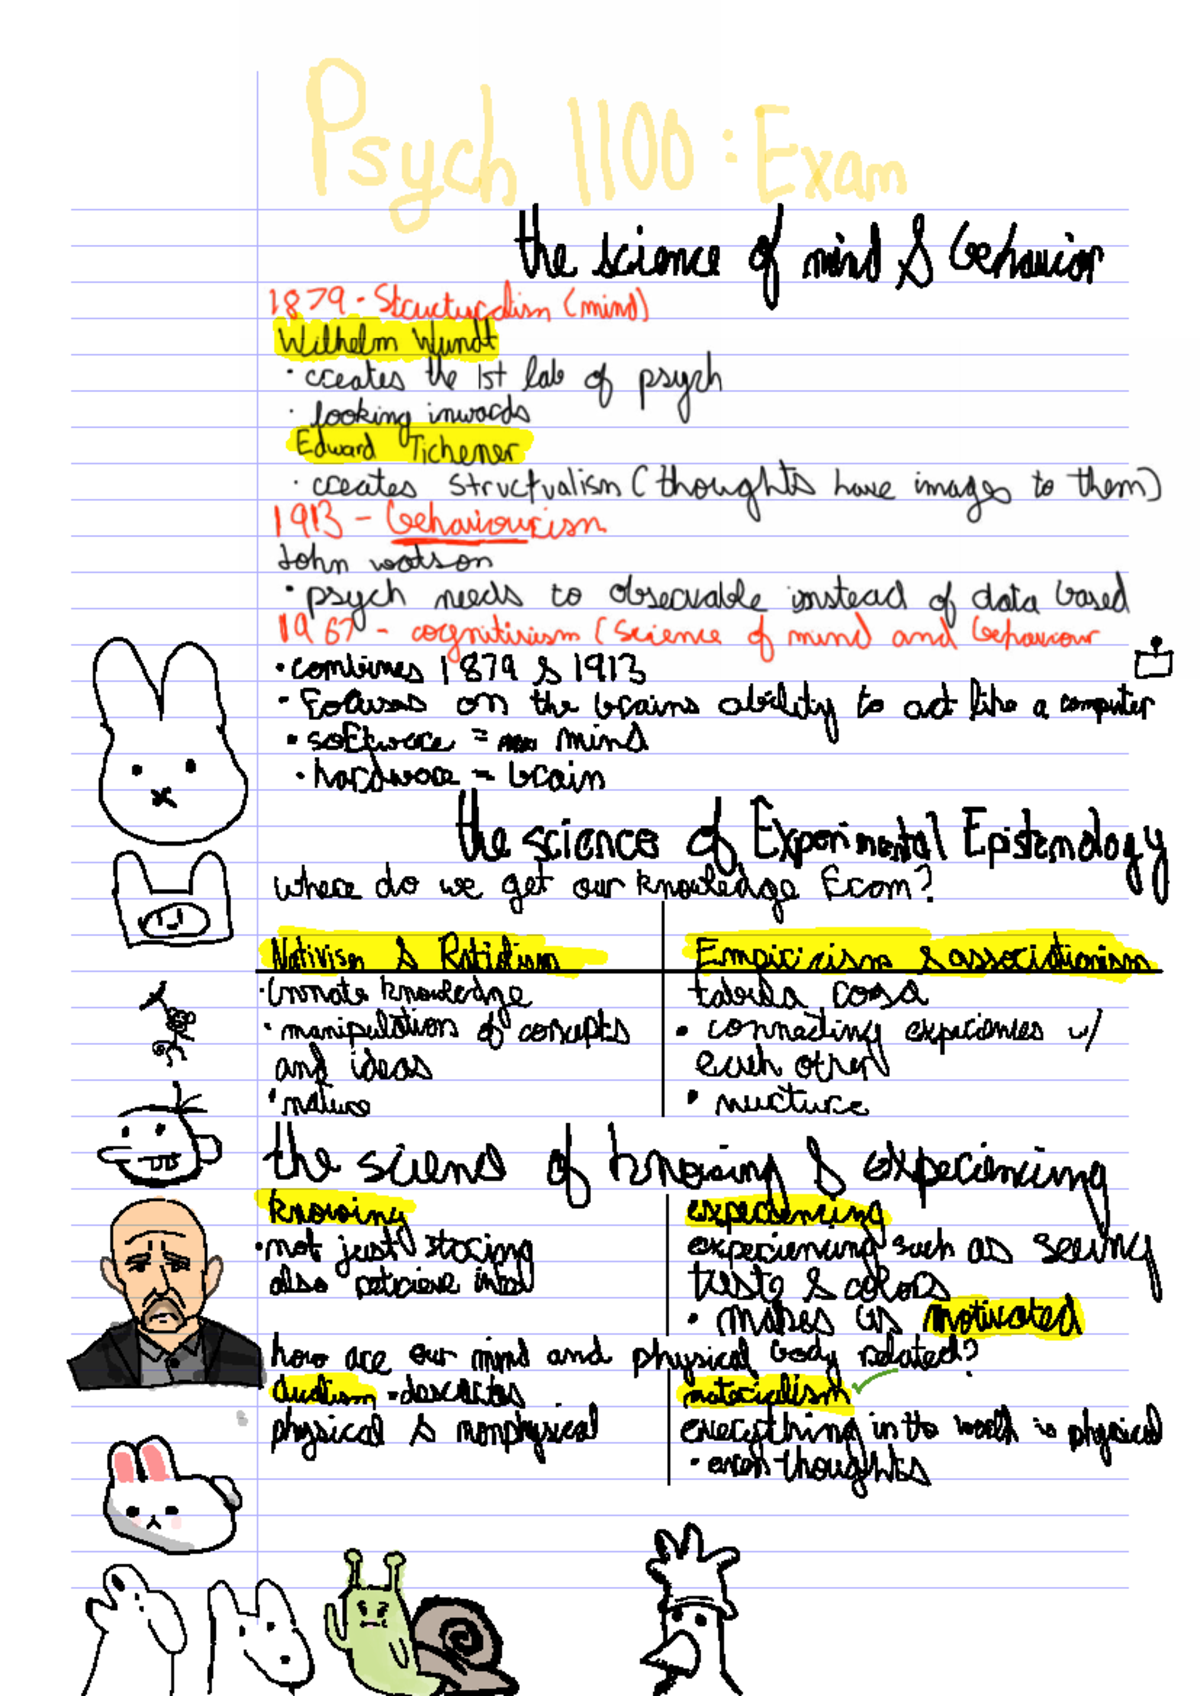 Psych 1100 : Exam
the science of mind & behavior
1879 - Structuralism (mind)
Wilhelm Wundt
· creates the 1st lab of psych
· looking inwards
Edward Tichener
· creates structualism (thoughts have images to them)
1913 - behaviourism
John watson
· psych needs to observable instead of data based
1967 - cognitivism (science of mind and behaviour
· combines 1879 & 1913
· Focuses on the brains ability to act like a computer
· software = mind
· hardware = brain
the science of Experimental Epistemology
where do we get our knowledge From?
Nativism & Empiricism & associationism
· innate knowledge
tabula rosa
· manipulation of concepts and ideas
· connecting experiences w/ each other
· nature
· nurture
the science of knowing & experiencing
knowing
experiencing
· not just storing also retrieve
experiencing such as seeing taste & colors
· makes us motivated
how are our mind and physical body related?
dualism - descartes
materialism
physical & nonphysical
everything in the world is physical
· even thoughts